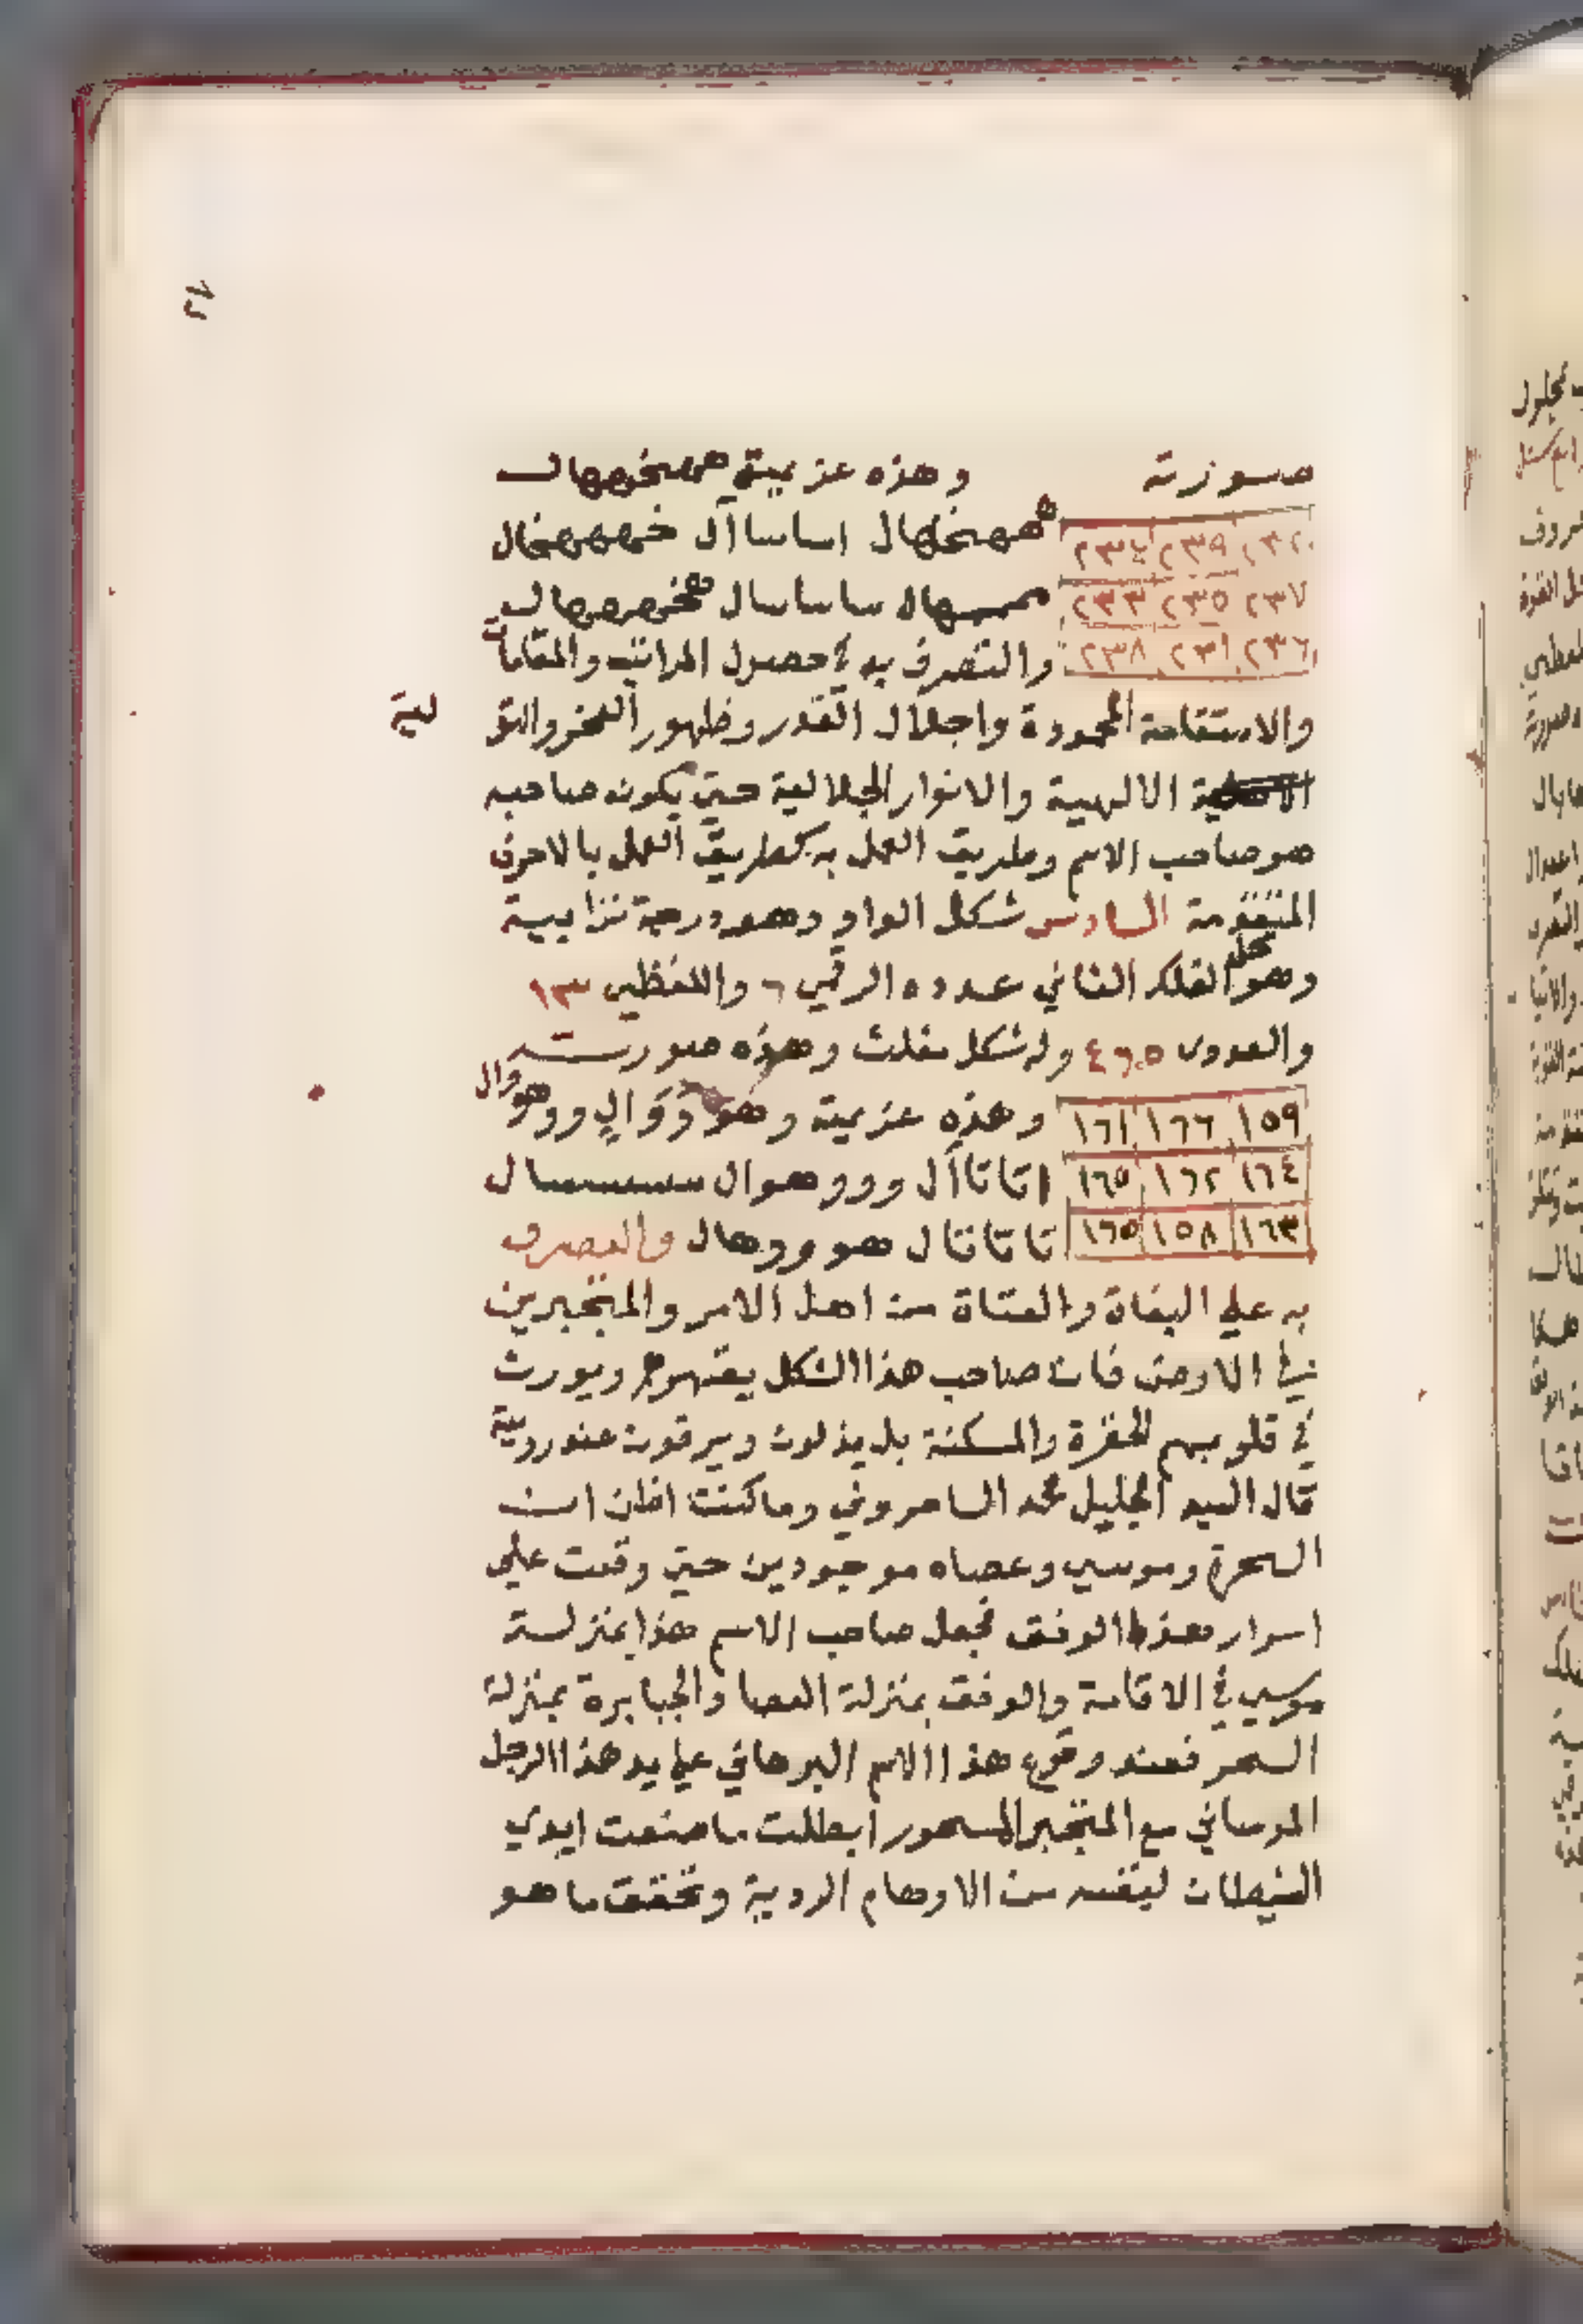 ٢٧
صورته وهذه عزيمته
اساساآل
٢٣٤ ٢٣٩ ٢٣٢
ساساسال
٢٣٣ ٢٣٥ ٢٣٧
والتصرف به في حصول المراتب والمقامات
٢٣٨ ٢٣١ ٢٣٦
والاستقامة المحمودة واجلال القدر وظهور الفخر والتو لية
الالهية والانوار الجلالية حتي يكون صاحبه
هو صاحب الاسم وطريق العمل به كطريق العمل بالاحرف
المتقدمة السادس شكل الواو وهو درجة ترابية
وهو محل الفلك الثاني عدده الرقمي ٦ واللفظي ١٣
والعددي ٤٦٥ وله شكل مثلث وهذه صورته
وهذه عزيمته وهو ووال وو هووال
١٦١ ١٦٦ ١٥٩
اتاتاآل ووو هوال سسسسسال
١٦٥ ١٦٢ ١٦٤
تاتاتال هو ووهال والتصرف
١٦٥ ١٥٨ ١٦٣
به علي البغاة والعتاة من اهل الامر والمتجبرين
في الارض فان صاحب هذا الشكل يقهرهم ويورث
في قلوبهم الحقرة والمسكنة بل يذلون ويبرقون عند رويته
قال السيد الجليل محمد الساحروني وما كنت اظن ان
السحرة وموسي وعصاه موجودين حتي وقعت علي
اسرار هذا الوفق فجعل صاحب الاسم هذا بمنزلة
موسي في الاقامة والوفق بمنزلة العصا والجبابرة بمنزلة
السحر فعند وقوع هذا الاسم البرهاني علي يد هذا الرجل
الموساني مع المتجبر المسحور ابطلت ما صنعت ايدي
الشيطان لنفسه من الاوهام الردية وتحقق ما هو